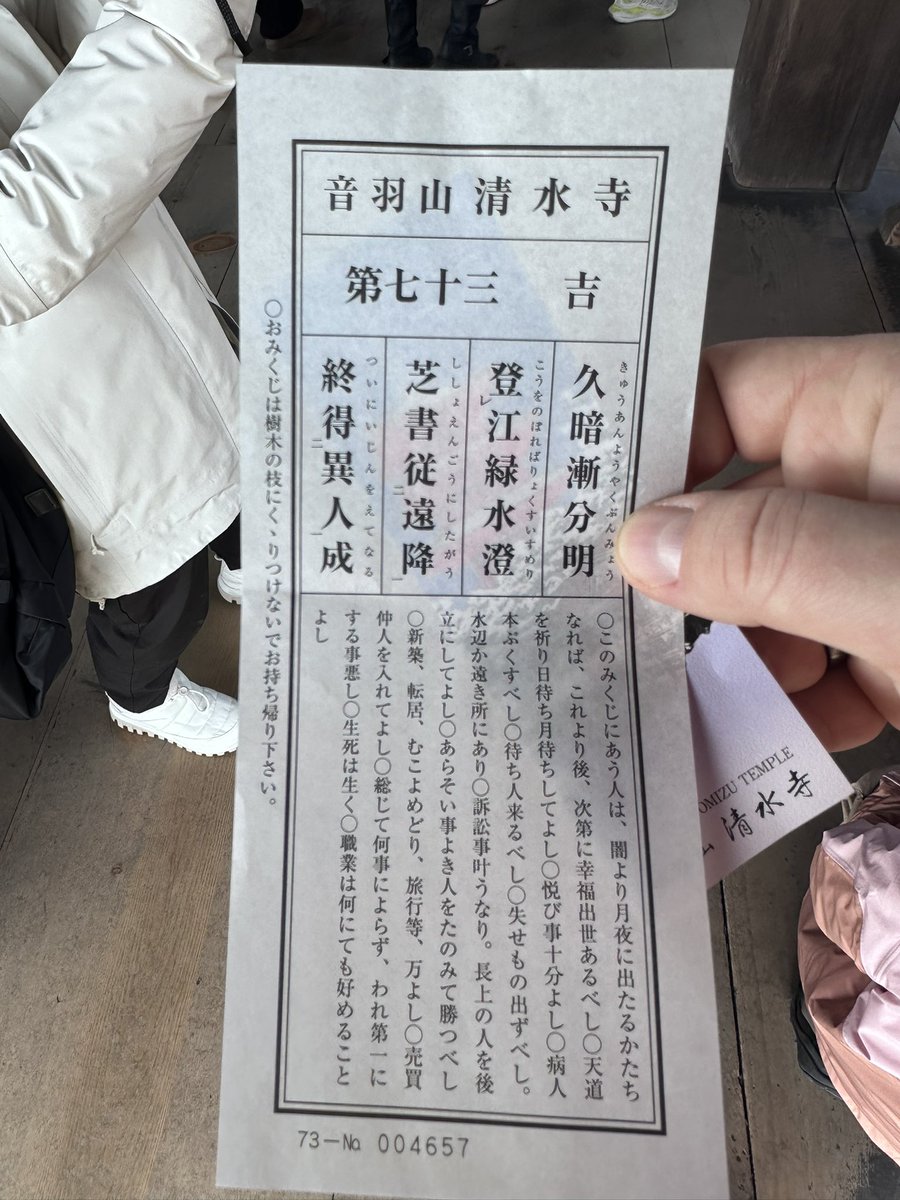 音羽山 清水寺
第七十三 吉
きゅうあんようやくぶんみょう
久暗漸分明
こうをのぼればりょくすいすめり
登レ江緑水澄
ししょえんごうにしたがう
芝書従二遠降一
ついにいじんをえてなる
終得二異人一成
〇このみくじにあう人は、闇より月夜に出たるかたち
なれば、これより後、次第に幸福出世あるべし〇天道
を祈り日待ち月待ちしてよし〇悦び事十分よし〇病人
本ぶくすべし〇待ち人来るべし〇失せもの出ずべし。
水辺か遠き所にあり〇訴訟事叶うなり。長上の人を後
立にしてよし〇あらそい事よき人をたのみて勝つべし
〇新築、転居、むこよめどり、旅行等、万よし〇売買
仲人を入れてよし〇総じて何事によらず、われ第一に
する事悪し〇生死は生く〇職業は何にても好めること
よし
〇おみくじは樹木の枝にくゝりつけないでお持ち帰り下さい。
73－№ 004657
OMIZU TEMPLE
山 清水寺